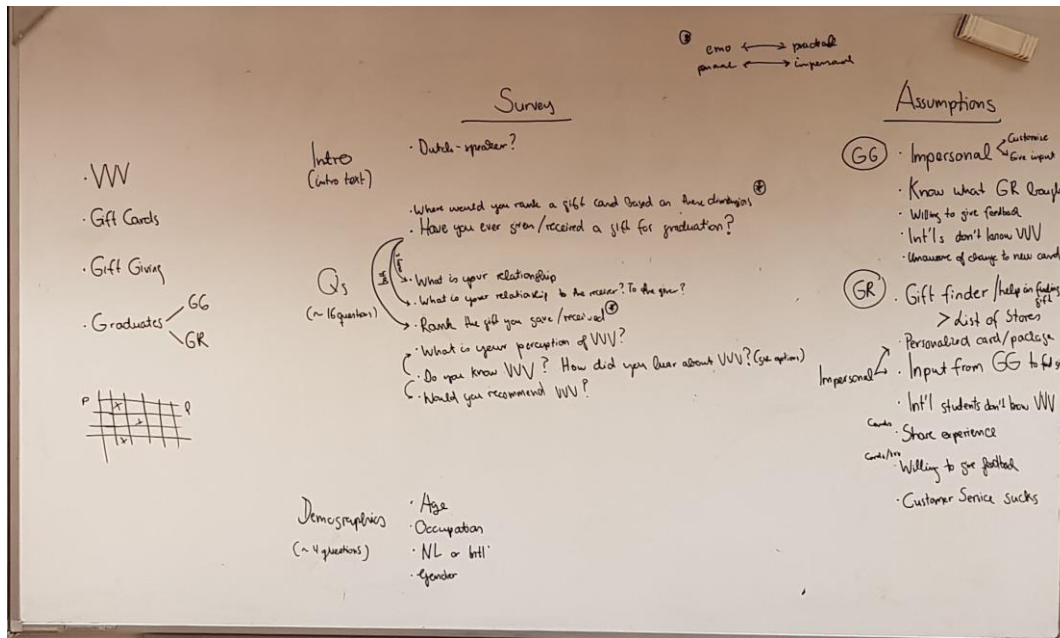 emo ⟷ practical
personal ⟷ impersonal
· VVV
· Gift Cards
· Gift Giving
· Graduates
GG
GR
P
Q
Survey
Intro
(intro text)
· Dutch-speaker?
· Where would you rank a gift card based on these dimensions *
· Have you ever given/received a gift for graduation?
Qs
(~ 16 questions)
· What is your relationship
· What is your relationship to the receiver? To the giver?
· Rank the gift you gave/received *
· What is your perception of VVV?
· Do you know VVV? How did you hear about VVV? (give options)
· Would you recommend VVV?
Demographics
(~ 4 questions)
· Age
· Occupation
· NL or Int'l
· Gender
Assumptions
GG
· Impersonal
Customise
Give input
· Know what GR
· Willing to give feedback
· Int'ls don't know VVV
· Unaware of change to new card
GR
· Gift finder/help in finding
gift
> List of Stores
· Personalized card/package
Impersonal
· Input from GG to
· Int'l students don't know VVV
Cards
· Share experience
· Willing to give feedback
· Customer Service sucks